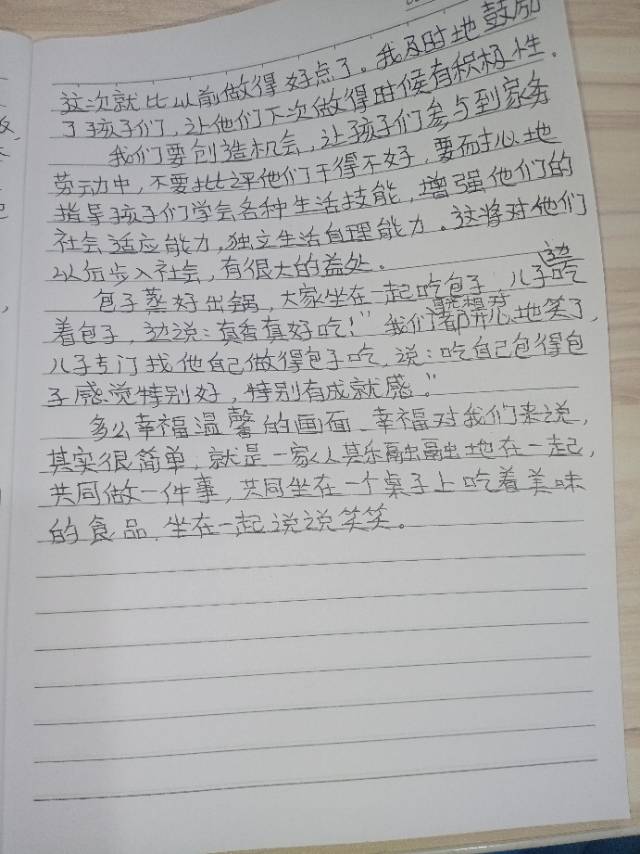 这次就比以前做得好点了。我及时地鼓励
了孩子们，让他们下次做得时候有积极性。
我们要创造机会，让孩子们参与到家务
劳动中，不要批评他们干得不好，要耐心地
指导孩子们学会各种生活技能，增强他们的
社会适应能力，独立生活自理能力。这将对他们
以后步入社会，有很大的益处。
包子蒸好出锅，大家坐在一起吃包子，儿子边吃
着包子，边说：真香真好吃！"我们都开心地笑了，
儿子专门找他自己做得包子吃，说：吃自己包得包
子感觉特别好，特别有成就感。"
多么幸福温馨的画面，幸福对我们来说，
其实很简单，就是一家人其乐融融地在一起，
共同做一件事，共同坐在一个桌子上吃着美味
的食品，坐在一起说说笑笑。